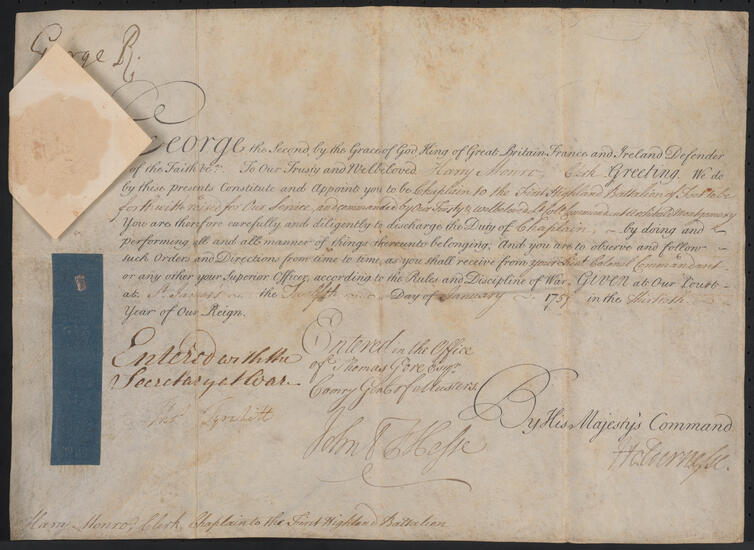 George R.
George the Second, by the Grace of God King of Great Britain France and Ireland Defender
of the Faith &c. To Our Trusty and Welbeloved Harry Monro, Clerk Greeting. We do
by these presents Constitute and Appoint you to be Chaplain to the First Highland Battalion of Foot to be
forthwith raised for Our Service, and commanded by Our Trusty & welbeloved Lt. Colo. Commandant Archibald Montgomery
You are therefore carefully and diligently to discharge the Duty of Chaplain, by doing and
performing all and all manner of things thereunto belonging. And you are to observe and follow
such Orders and Directions from time to time, as you shall receive from your Lieut. Colonel Commandant
or any other your Superior Officer, according to the Rules and Discipline of War. Given at Our Court
at St. James's the Twelfth Day of January 1757 in the Thirtieth
Year of Our Reign.
Entered with the
Secretary at War
Thos. Tyrwhitt
Entered in the Office
of Thomas Gore Esqr.
Comry Genl. of Musters
John Hesse
By His Majesty's Command
Holdernesse.
Harry Monro, Clerk, Chaplain to the First Highland Battalion